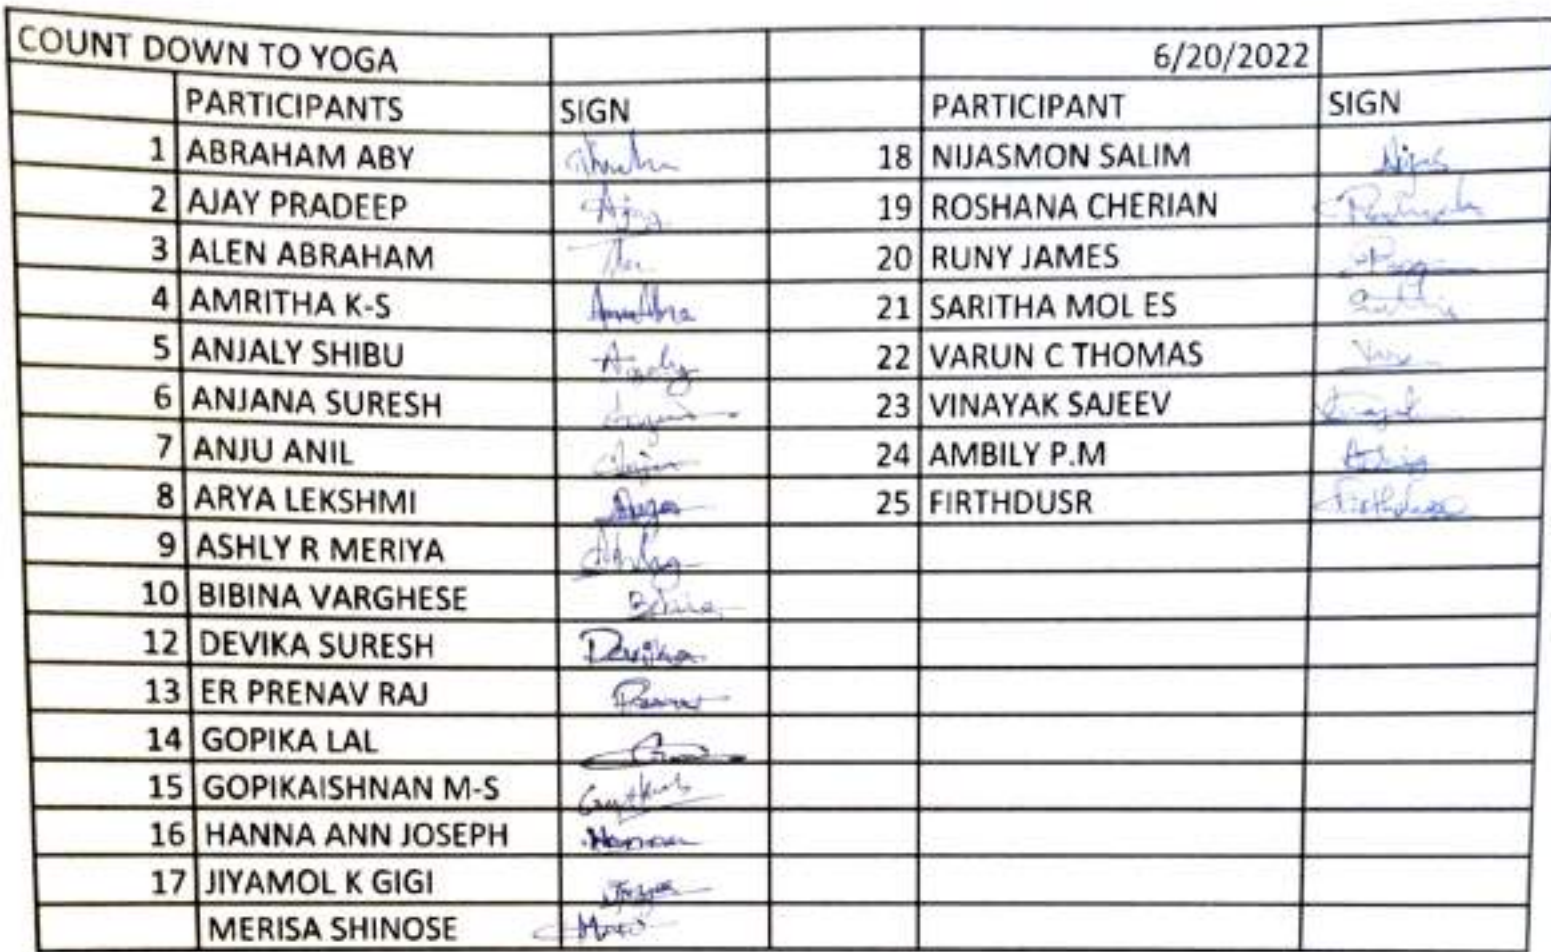 COUNT DOWN TO YOGA 6/20/2022
PARTICIPANTS SIGN PARTICIPANT SIGN
1 ABRAHAM ABY 18 NIJASMON SALIM Nijas
2 AJAY PRADEEP Ajay 19 ROSHANA CHERIAN
3 ALEN ABRAHAM 20 RUNY JAMES
4 AMRITHA K-S Amritha 21 SARITHA MOL ES
5 ANJALY SHIBU Anjaly 22 VARUN C THOMAS
6 ANJANA SURESH 23 VINAYAK SAJEEV
7 ANJU ANIL 24 AMBILY P.M
8 ARYA LEKSHMI 25 FIRTHDUSR
9 ASHLY R MERIYA
10 BIBINA VARGHESE
12 DEVIKA SURESH Devika
13 ER PRENAV RAJ
14 GOPIKA LAL
15 GOPIKAISHNAN M-S
16 HANNA ANN JOSEPH
17 JIYAMOL K GIGI
MERISA SHINOSE